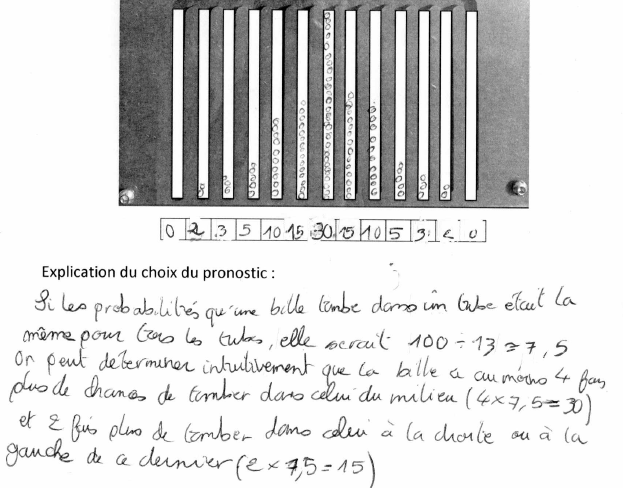 0 2 3 5 10 15 30 15 10 5 3 2 0
Explication du choix du pronostic :
Si les probabilités qu'une bille tombe dans un tube était la
même pour tous les tubes, elle serait 100 ÷ 13 ≈ 7,5
On peut déterminer intuitivement que la bille a au moins 4 fois
plus de chances de tomber dans celui du milieu (4 x 7,5 = 30)
et 2 fois plus de tomber dans celui à la droite ou à la
gauche de ce dernier (2 x 7,5 = 15)